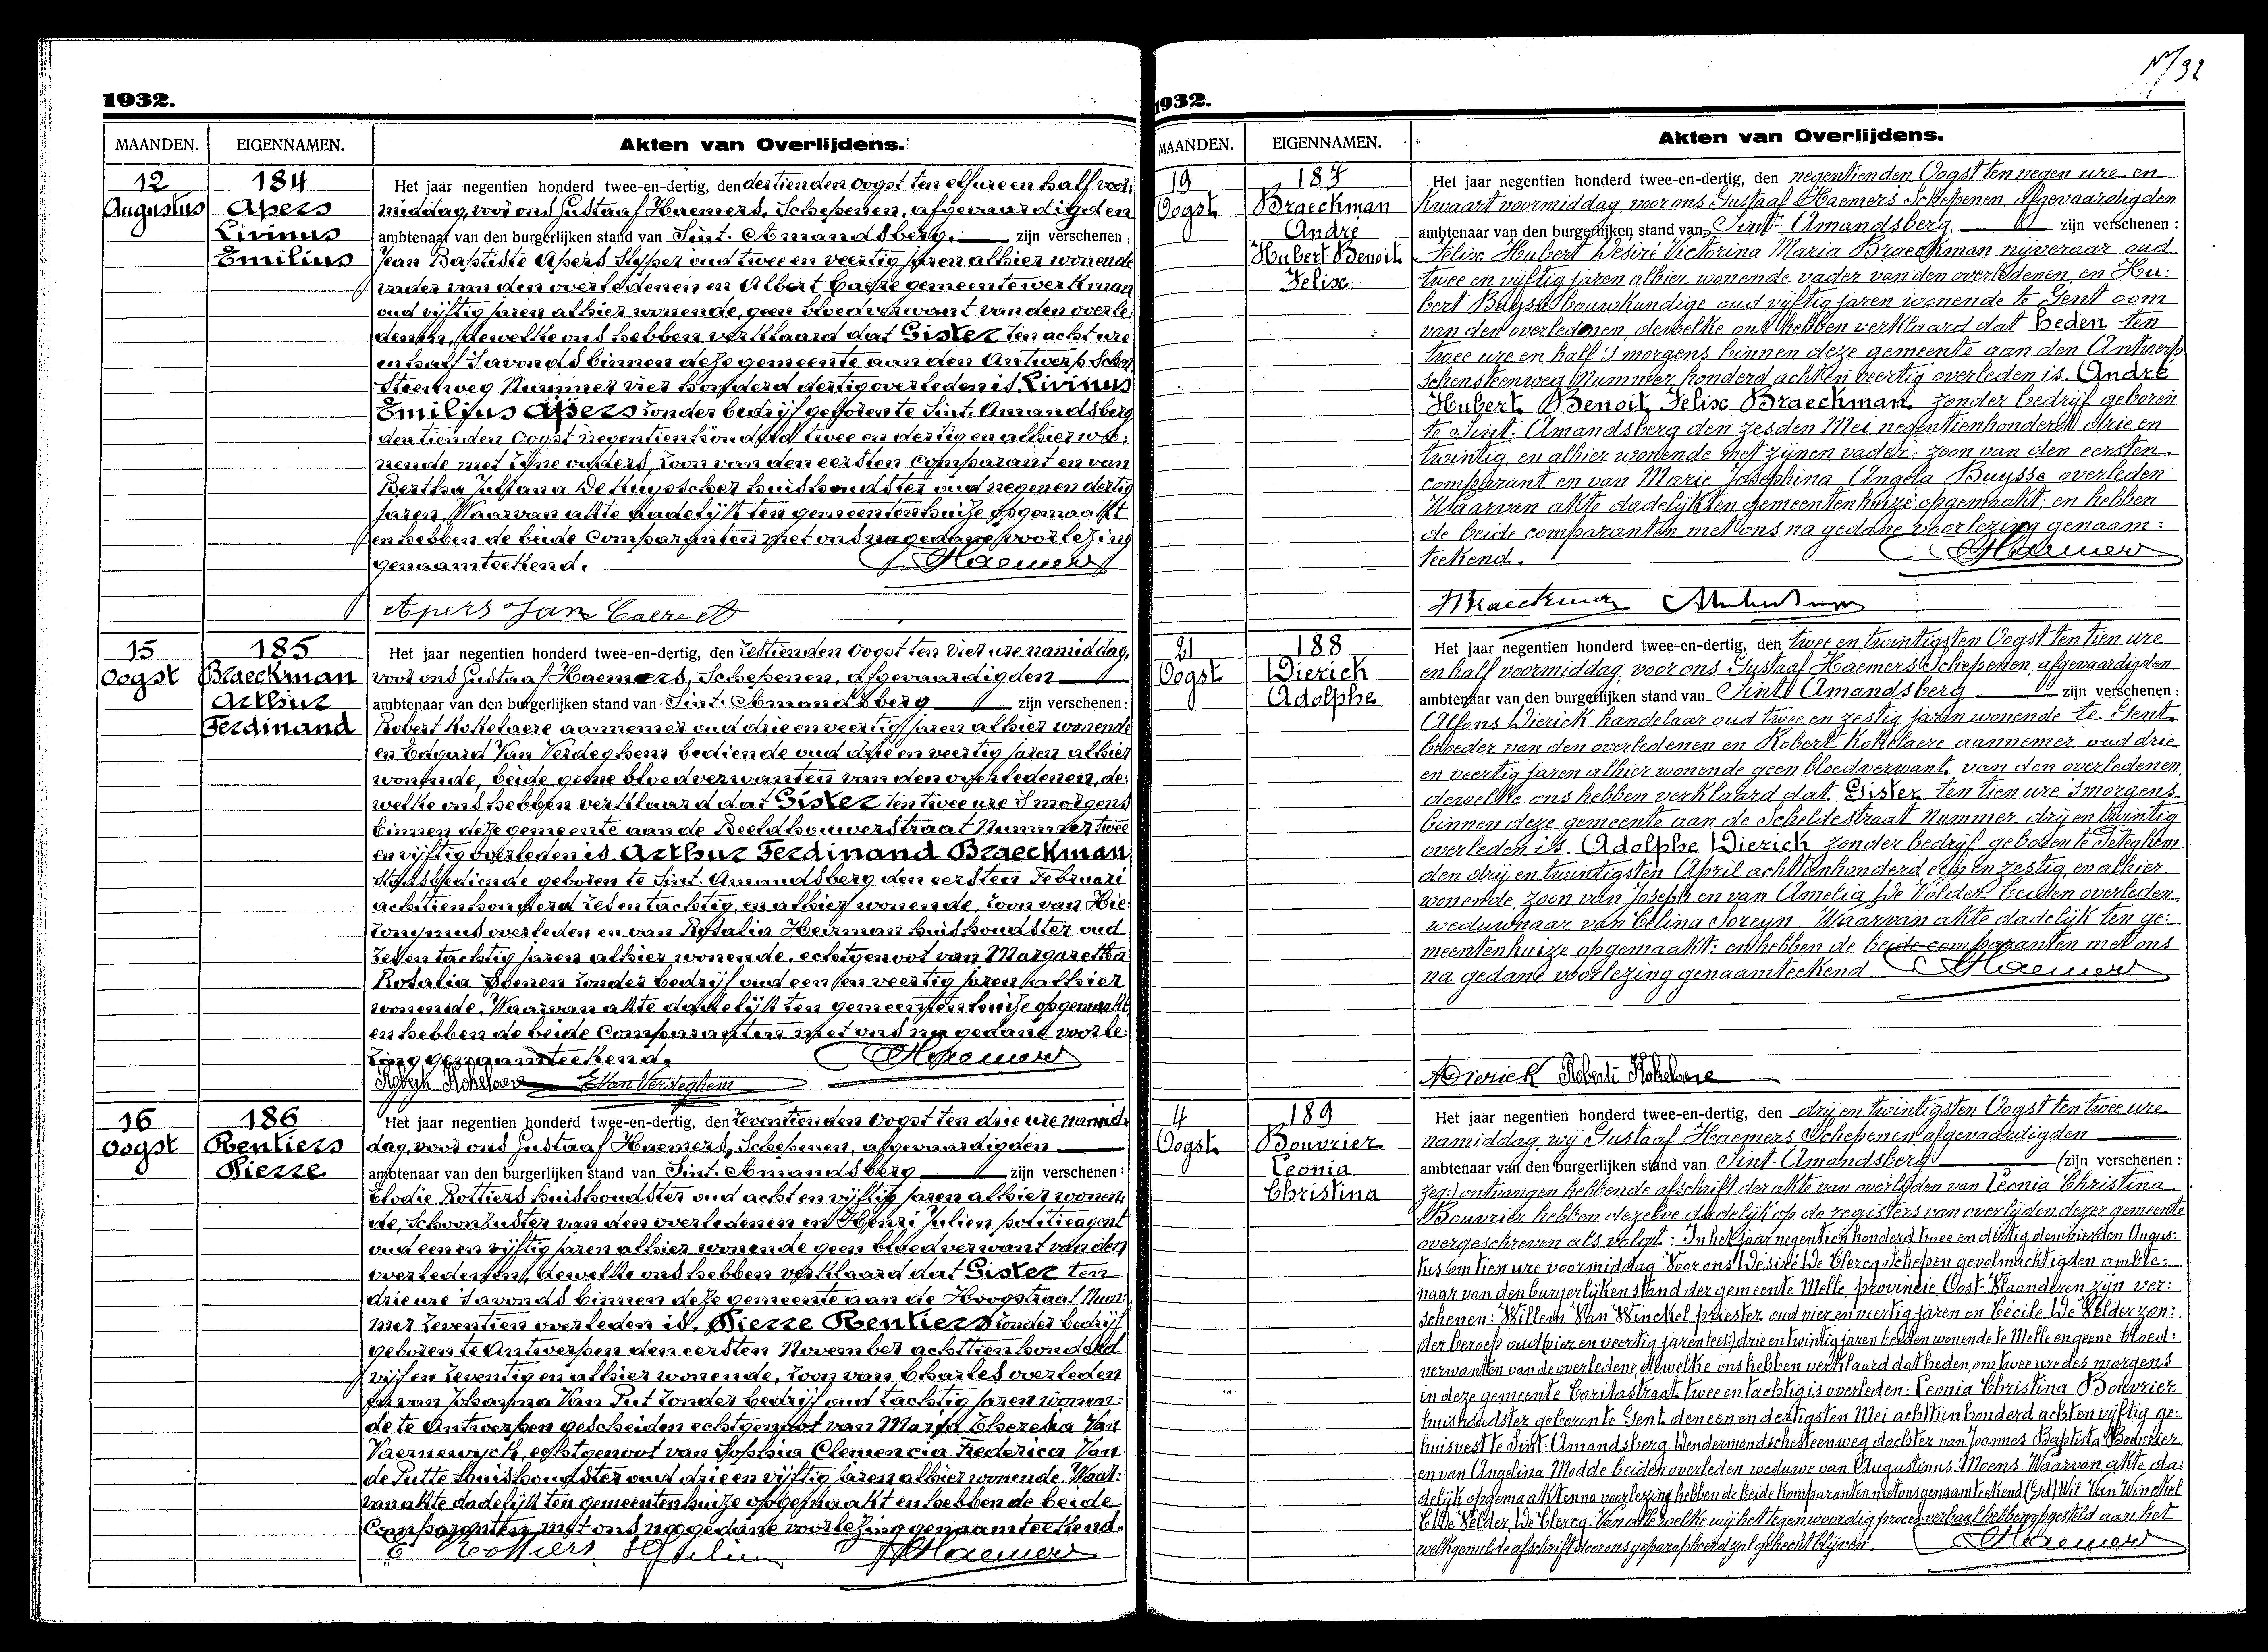 1932.
MAANDEN. EIGENNAMEN. Akten van Overlijdens.
12 Augustus
184
Apers
Livinus
Emilius
Het jaar negentien honderd twee-en-dertig, den dertienden Oogst ten elf ure en half voor:
middag, voor ons Gustaaf Haemers, Schepenen, afgevaardigden
ambtenaar van den burgerlijken stand van Sint-Amandsberg. zijn verschenen:
Jean Baptiste Apers slijper oud twee en veertig jaren alhier wonende
vader van den overledenen en Albert Caere gemeentewerkman
oud vijftig jaren alhier wonende, geen bloedverwant van den overle:
denen, dewelke ons hebben verklaard dat Gister ten acht ure
en half 's avonds binnen deze gemeente aan den Antwerpschen
Steenweg Nummer vier honderd dertig overleden is, Livinus
Emilius Apers zonder bedrijf geboren te Sint-Amandsberg
den tienden Oogst negentienhonderd twee en dertig en alhier wo:
nende met zijne ouders, zoon van den eersten Comparant en van
Bertha Juliana De Kuysscher huishoudster oud negen en dertig
jaren. Waarvan akte dadelijk ten gemeentenhuize opgemaakt
en hebben de beide Comparanten met ons na gedane voorlezing
genaamteekend. Haemers
Apers Jan
15 Oogst
185
Braeckman
Arthur
Ferdinand
Het jaar negentien honderd twee-en-dertig, den zestienden Oogst ten vier ure namiddag,
voor ons Gustaaf Haemers, Schepenen, afgevaardigden
ambtenaar van den burgerlijken stand van Sint-Amandsberg zijn verschenen:
Robert Kokelaere aannemer oud drie en veertig jaren alhier wonende
en Edgard Van Verdeghem bediende oud drie en veertig jaren alhier
wonende, beide geene bloedverwanten van den overledenen, de:
welke ons hebben verklaard dat Gister ten twee ure 's morgens
binnen deze gemeente aan de Beeldhouwerstraat Nummer twee
en vijftig overleden is Arthur Ferdinand Braeckman
bediende geboren te Sint-Amandsberg den eersten Februari
achttienhonderd zes en tachtig, en alhier wonende, zoon van Hie:
ronymus overleden en van Rosalia Heirman huishoudster oud
zes en tachtig jaren alhier wonende, echtgenoot van Margaretha
Rosalia zonder bedrijf oud een en veertig jaren alhier
wonende. Waarvan akte dadelijk ten gemeentenhuize opgemaakt
en hebben de beide Comparanten met ons na gedane voorle:
zing genaamteekend. Haemers
Robert Kokelaere E Van Verdeghem
16 Oogst
186
Rentiers
Pierre
Het jaar negentien honderd twee-en-dertig, den zeventienden Oogst ten drie ure namid:
dag, voor ons Gustaaf Haemers, Schepenen, afgevaardigden
ambtenaar van den burgerlijken stand van Sint-Amandsberg zijn verschenen:
Elodie Rottiers huishoudster oud acht en vijftig jaren alhier wonen:
de, Schoonzuster van den overledenen en Henri Julien politieagent
oud een en vijftig jaren alhier wonende geen bloedverwant van den
overledenen, dewelke ons hebben verklaard dat Gister ten
drie ure 's avonds binnen deze gemeente aan de Hoogstraat Num:
mer zeventien overleden is, Pierre Rentiers zonder bedrijf
geboren te Antwerpen den eersten November achttienhonderd
vijf en zeventig en alhier wonende, zoon van Charles overleden
en van Johanna Van Put zonder bedrijf oud tachtig jaren wonen:
de te Antwerpen gescheiden echtgenoot van Maria Theresia Van
Vaernewyck, echtgenoot van Sophia Clemencia Frederica Van
de Putte huishoudster oud drie en vijftig jaren alhier wonende. Waar:
van akte dadelijk ten gemeentenhuize opgemaakt en hebben de beide
Comparanten met ons na gedane voorlezing genaamteekend.
E Rottiers H Julien Haemers
N/32
1932.
MAANDEN. EIGENNAMEN. Akten van Overlijdens.
19 Oogst
187
Braeckman
André
Hubert Benoit
Felix
Het jaar negentien honderd twee-en-dertig, den negentienden Oogst ten negen ure en
kwaart voormiddag voor ons Gustaaf Haemers Schepenen afgevaardigden
ambtenaar van den burgerlijken stand van Sint-Amandsberg zijn verschenen:
Felix Hubert Désiré Victorina Maria Braeckman nijveraar oud
twee en vijftig jaren alhier wonende vader van den overledenen, en Hu:
bert Buysse bouwkundige oud vijftig jaren wonende te Gent oom
van den overledenen, dewelke ons hebben verklaard dat heden ten
twee ure en half 's morgens binnen deze gemeente aan den Antwerp
schensteenweg Nummer honderd acht en veertig overleden is. André
Hubert Benoit Felix Braeckman zonder bedrijf geboren
te Sint-Amandsberg den zesden Mei negentienhonderd drie en
twintig en alhier wonende met zijnen vader, zoon van den eersten
comparant en van Marie Josephina Angela Buysse overleden
Waarvan akte dadelijk ten gemeentenhuize opgemaakt: en hebben
de beide comparanten met ons na gedane voorlezing genaam:
teekend. Haemers
Braeckman
21 Oogst
188
Dierick
Adolphe
Het jaar negentien honderd twee-en-dertig, den twee en twintigsten Oogst ten tien ure
en half voormiddag voor ons Gustaaf Haemers Schepenen afgevaardigden
ambtenaar van den burgerlijken stand van Sint-Amandsberg zijn verschenen:
Alfons Dierick handelaar oud twee en zestig jaren wonende te Gent
broeder van den overledenen en Robert Kokelaere aannemer oud drie
en veertig jaren alhier wonende geen bloedverwant van den overledenen
dewelke ons hebben verklaard dat Gister ten tien ure 's morgens
binnen deze gemeente aan de Scheldestraat Nummer drij en twintig
overleden is Adolphe Dierick zonder bedrijf geboren te Seteghem
den drij en twintigsten April achttienhonderd een en zestig en alhier
wonende, zoon van Joseph en van Amelia De Volder beiden overleden,
weduwnaar van Celina Soreyn Waarvan akte dadelijk ten ge:
meentenhuize opgemaakt: en hebben de beide comparanten met ons
na gedane voorlezing genaamteekend. Haemers
ADierick Robert Kokelaere
4 Oogst
189
Bouvrier
Leonia
Christina
Het jaar negentien honderd twee-en-dertig, den drij en twintigsten Oogst ten twee ure
namiddag wij Gustaaf Haemers Schepenen afgevaardigden
ambtenaar van den burgerlijken stand van Sint-Amandsberg (zijn verschenen:
zeg:) ontvangen hebbende afschrift der akte van overlijden van Leonia Christina
Bouvrier hebben dezelve dadelijk op de registers van overlijden dezer gemeente
overgeschreven als volgt: In het jaar negentien honderd twee en dertig den vierden Augus:
tus om tien ure voormiddag Voor ons Désiré De Clercq Schepen gevolmachtigden ambte:
naar van den burgerlijken stand der gemeente Melle provincie Oost-Vlaanderen zijn ver:
schenen: Willem Van Winckel priester oud vier en veertig jaren en Cécile De Velder zon:
der beroep oud (vier en veertig jaren zeg:) drie en twintig jaren beiden wonende te Melle en geene bloed:
verwanten van de overledene, dewelke ons hebben verklaard dat heden, om twee ure des morgens
in deze gemeente Caritasstraat twee en tachtig is overleden: Leonia Christina Bouvrier
huishoudster geboren te Gent den een en dertigsten Mei achttienhonderd acht en vijftig ge:
huisvest te Sint-Amandsberg Dendermondschesteenweg dochter van Joannes Baptista Bouvrier
en van Angelina Modde beiden overleden weduwe van Augustinus Moens. Waarvan akte da:
delijk opgemaakt en na voorlezing hebben de beide komparanten met ons genaamteekend (Get) Wil Van Winckel
C De Velder De Clercq. Van alle welke wij het tegenwoordig proces verbaal hebben opgesteld aan het
welk gemelde afschrift door ons geparapheerd zal gehecht blijven. Haemers